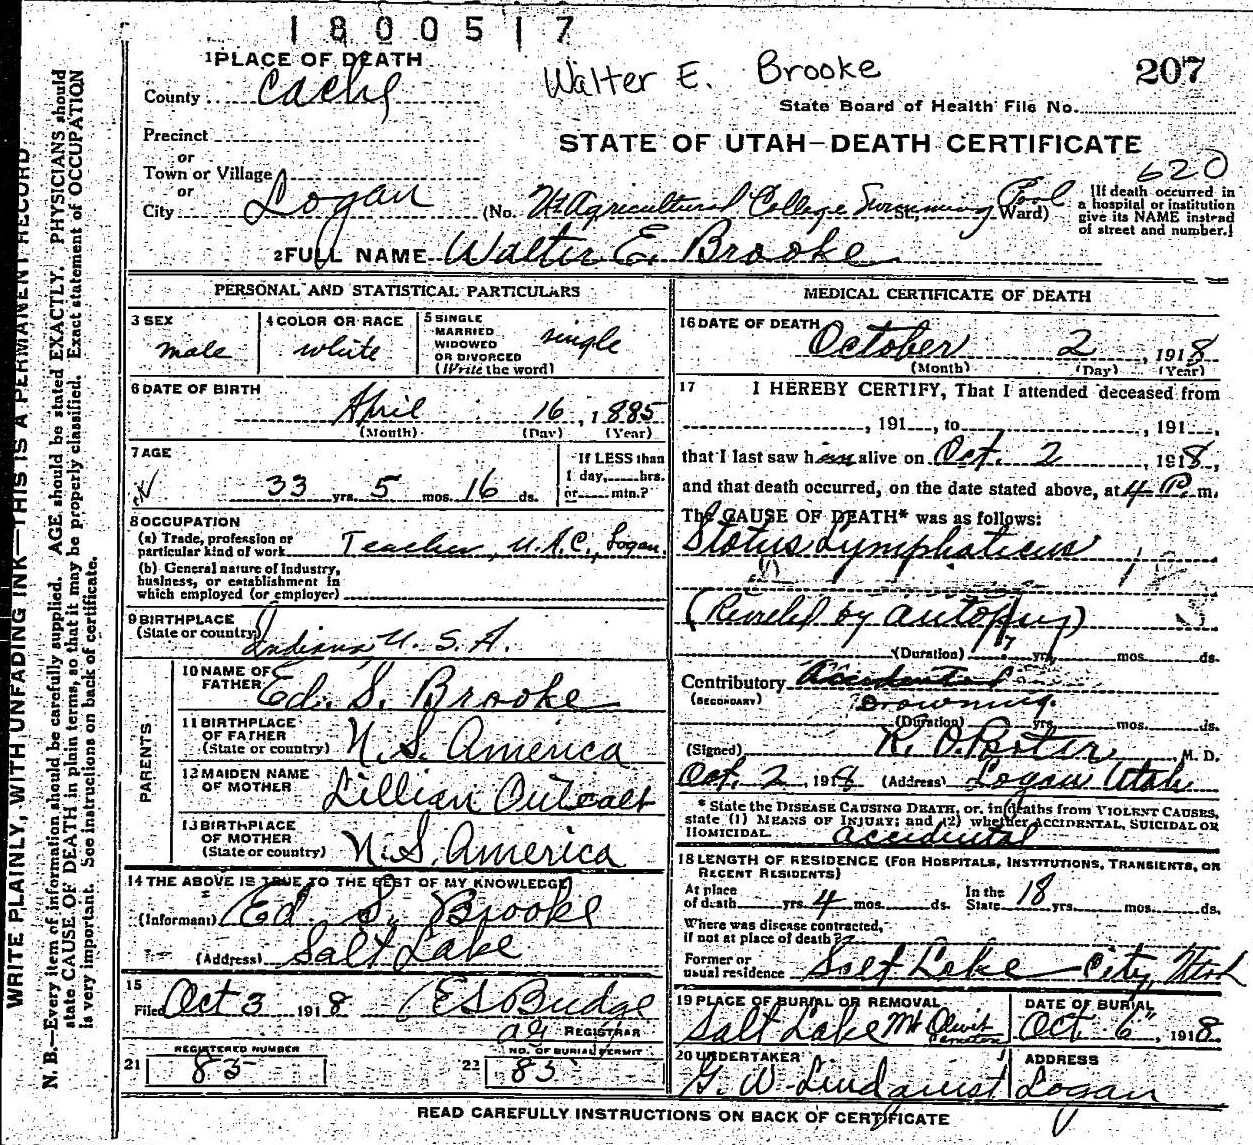 1800517
1 PLACE OF DEATH
Walter E. Brooke
207
County Cache
State Board of Health File No.
Precinct
STATE OF UTAH—DEATH CERTIFICATE
or
620
Town or Village
or
City Logan (No. Ut Agricultural College Swimming Pool St.; Ward)
[If death occurred in
a hospital or institution
give its NAME instead
of street and number.]
2 FULL NAME Walter E. Brooke
PERSONAL AND STATISTICAL PARTICULARS
3 SEX
male
4 COLOR OR RACE
white
5 SINGLE
MARRIED
WIDOWED
OR DIVORCED
(Write the word)
single
6 DATE OF BIRTH
April 16, 1885
(Month) (Day) (Year)
7 AGE
33 yrs. 5 mos. 16 ds.
If LESS than
1 day, hrs.
or min.?
8 OCCUPATION
(a) Trade, profession or
particular kind of work Teacher, U.A.C., Logan.
(b) General nature of Industry,
business, or establishment in
which employed (or employer)
9 BIRTHPLACE
(State or country) Indiana U.S.A.
PARENTS
10 NAME OF
FATHER Ed. S. Brooke
11 BIRTHPLACE
OF FATHER
(State or country) N.S. America
12 MAIDEN NAME
OF MOTHER Lillian Outcalt
13 BIRTHPLACE
OF MOTHER
(State or country) N.S. America
14 THE ABOVE IS TRUE TO THE BEST OF MY KNOWLEDGE
(Informant) Ed. S. Brooke
(Address) Salt Lake
15
Filed Oct 3 1918 E S Budge
REGISTRAR
21 REGISTERED NUMBER
83
22 NO. OF BURIAL PERMIT
83
MEDICAL CERTIFICATE OF DEATH
16 DATE OF DEATH
October 2, 1918
(Month) (Day) (Year)
17 I HEREBY CERTIFY, That I attended deceased from
, 191 , to , 191 ,
that I last saw him alive on Oct. 2, 1918,
and that death occurred, on the date stated above, at 4 P. m.
The CAUSE OF DEATH* was as follows:
Status Lymphaticus
(Reveled by autopsy)
(Duration) yrs. mos. ds.
Contributory Accidental
(SECONDARY) Drowning.
(Duration) yrs. mos. ds.
(Signed) R. O. Porter M. D.
Oct. 2, 1918 (Address) Logan Utah
* State the DISEASE CAUSING DEATH, or, in deaths from VIOLENT CAUSES,
state (1) MEANS OF INJURY; and (2) whether ACCIDENTAL, SUICIDAL OR
HOMICIDAL. accidental
18 LENGTH OF RESIDENCE (FOR HOSPITALS, INSTITUTIONS, TRANSIENTS, OR
RECENT RESIDENTS)
At place
of death yrs. 4 mos. ds.
In the
State 18 yrs. mos. ds.
Where was disease contracted,
if not at place of death?
Former or
usual residence Salt Lake City, Utah
19 PLACE OF BURIAL OR REMOVAL
Salt Lake Mt Olivet
DATE OF BURIAL
Oct. 6", 1918.
20 UNDERTAKER
G. W. Lindquist
ADDRESS
Logan
READ CAREFULLY INSTRUCTIONS ON BACK OF CERTIFICATE
WRITE PLAINLY, WITH UNFADING INK—THIS IS A PERMANENT RECORD
N. B.—Every item of information should be carefully supplied. AGE should be stated EXACTLY. PHYSICIANS should
state CAUSE OF DEATH in plain terms, so that it may be properly classified. Exact statement of OCCUPATION
is very important. See instructions on back of certificate.